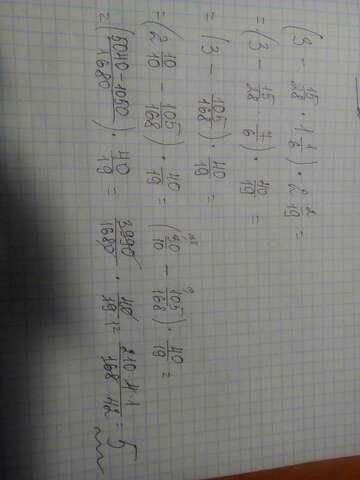 (3 - 15/28 · 1 1/6) · 2 2/19 =
= (3 - 15/28 · 7/6) · 40/19 =
= (3 - 105/168) · 40/19 =
= (2 10/10 - 105/168) · 40/19 = (30/10 - 105/168) · 40/19 =
= (5040-1050/1680) · 40/19 = 3990/1680 · 40/19 = 5